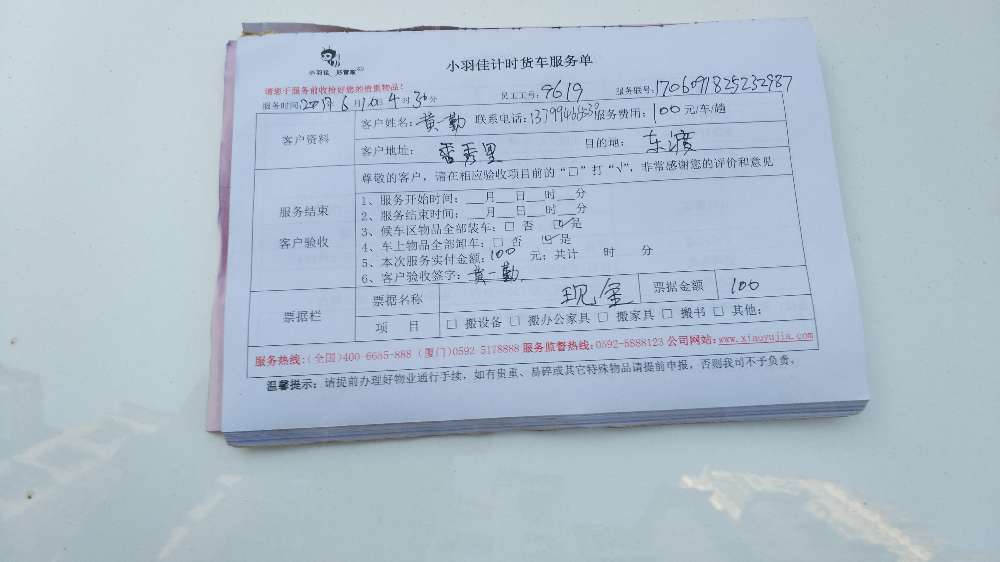 小羽佳 好管家
小羽佳计时货车服务单
请您于服务前收检好您的贵重物品!
服务时间:2017年6月10日4时30分 员工工号:9619 服务联号:1706091825232987
客户资料
客户姓名:黄勤 联系电话: 服务费用:100元/车/趟
客户地址:香秀里 目的地:东渡
服务结束
客户验收
尊敬的客户,请在相应验收项目前的“□”打“√”,非常感谢您的评价和意见
1、服务开始时间:___月___日___时___分
2、服务结束时间:___月___日___时___分
3、候车区物品全部装车:□ 否 ☑是
4、车上物品全部卸车:□ 否 ☑是
5、本次服务实付金额:100 元;共计 时 分
6、客户验收签字:黄勤
票据栏
票据名称 现金 票据金额 100
项 目 □ 搬设备 □ 搬办公家具 □ 搬家具 □ 搬书 □ 其他:
服务热线:(全国)400-6655-888 (厦门)0592-5178888 服务监督热线:0592-5888123 公司网站:www.xiaoyujia.com
温馨提示:请提前办理好物业通行手续,如有贵重、易碎或其它特殊物品请提前申报,否则我司不予负责。